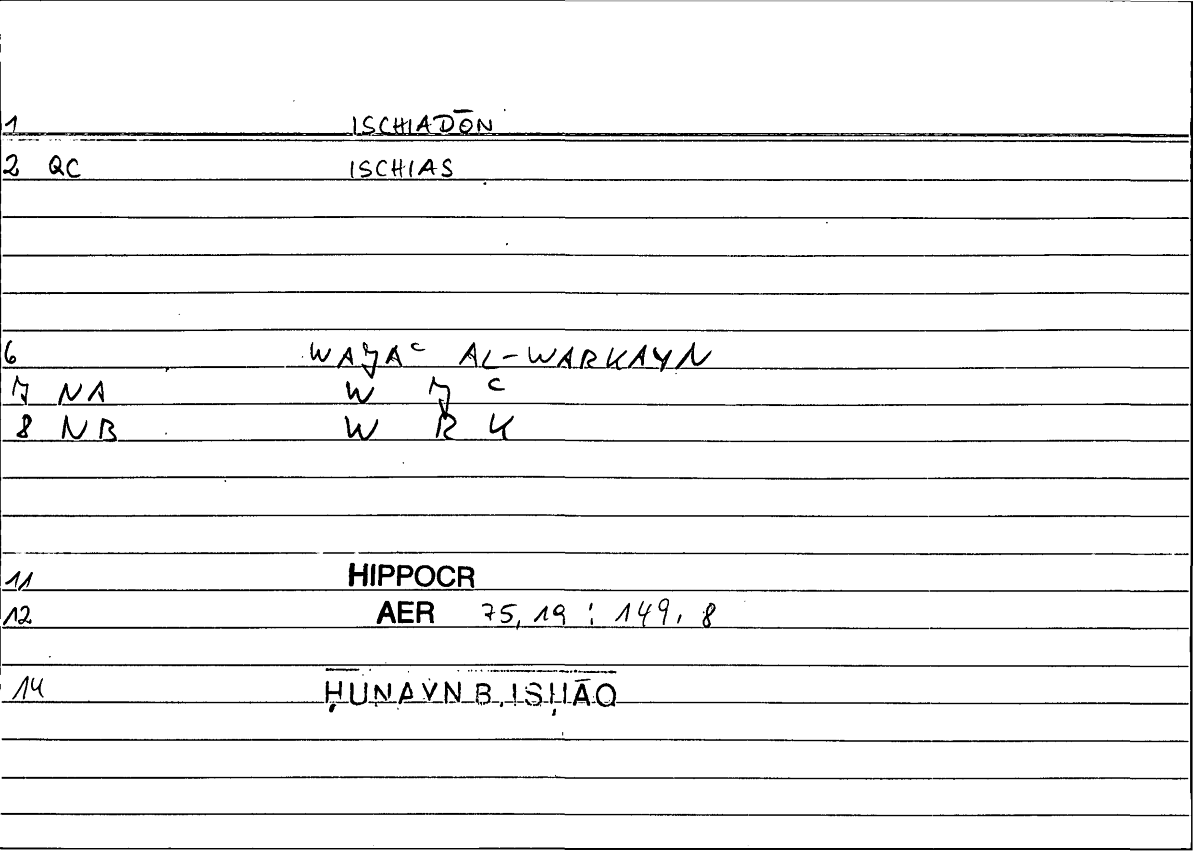 1 ISCHIADŌN
2 QC ISCHIAS
6 WAJAᶜ AL-WARKAYN
7 NA W J ᶜ
8 NB W R K
11 HIPPOCR
12 AER 75,19 : 149,8
14 ḤUNAYN B. ISḤĀQ